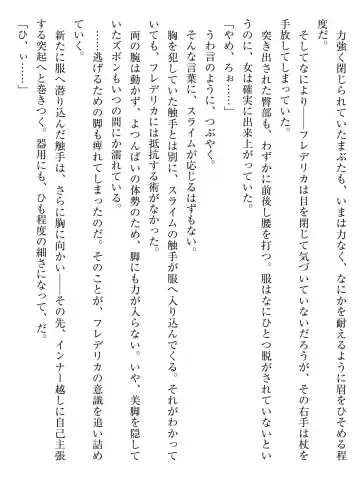 力強く閉じられていたまぶたも、いまは力なく、なにかを耐えるように眉をひそめる程
度だ。
そしてなにより――フレデリカは目を閉じて気づいていないだろうが、その右手は杖を
手放してしまっていた。
突き出された臀部も、わずかに前後し腰を打つ。服はなにひとつ脱がされていないとい
うのに、女は確実に出来上がっていた。
「やめ、ろぉ……」
うわ言のように、つぶやく。
そんな言葉に、スライムが応じるはずもない。
胸を犯していた触手とは別に、スライムの触手が服へ入り込んでくる。それがわかって
いても、フレデリカには抵抗する術がなかった。
両の腕は動かず、よつんばいの体勢のため、脚にも力が入らない。いや、美脚を隠して
いたズボンもいつの間にか濡れている。
……逃げるための脚も痺れてしまったのだ。そのことが、フレデリカの意識を追い詰め
ていく。
新たに服へ潜り込んだ触手は、さらに胸に向かい――その先、インナー越しに自己主張
する突起へと巻きつく。器用にも、ひも程度の細さになって、だ。
「ひ、ぃ……」